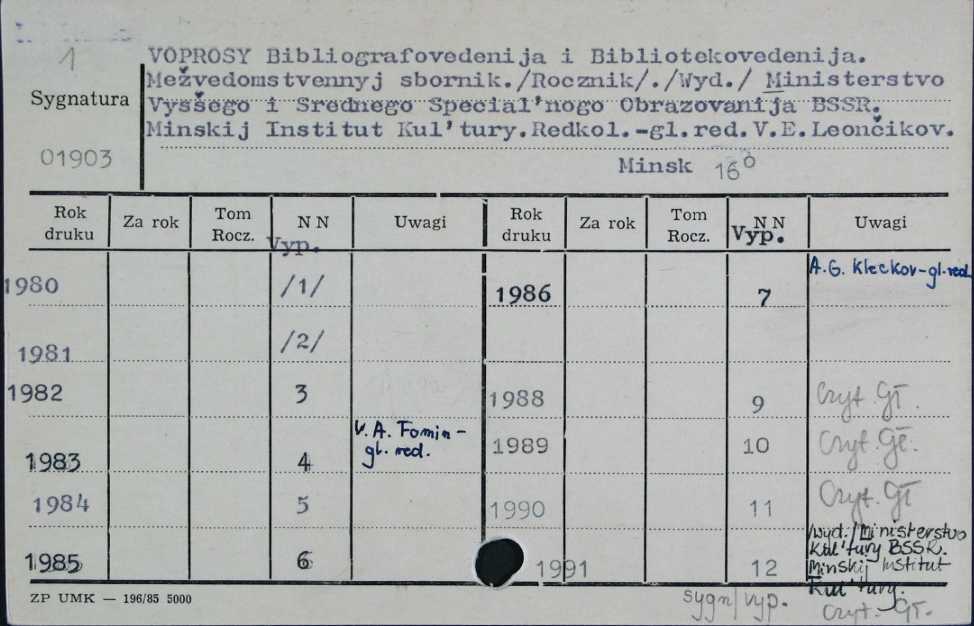 1
VOPROSY Bibliografovedenija i Bibliotekovedenija.
Mežvedomstvennyj sbornik./Rocznik/./Wyd./ Ministerstvo
Sygnatura
Vysšego i Srednego Special'nogo Obrazovanija BSSR.
Minskij Institut Kul'tury.Redkol.-gl.red.V.E.Leončikov.
01903
Minsk 16°
Rok druku Za rok Tom Rocz. N N Uwagi Rok druku Za rok Tom Rocz. N N Uwagi
Vyp. Vyp.
A.G. Kleckov-gl.red.
1980 /1/ 1986 7
1981 /2/
1982 3 1988 9 Czyt. Gł.
V. A. Fomin-
gl. red.
1983 4 1989 10 Czyt. Gł.
1984 5 1990 11 Czyt. Gł
/wyd./Ministerstvo
Kul'tury BSSR.
Minskij Institut
Kul'tury.
1985 6 1991 12
sygn/vyp. Czyt. Gł.
ZP UMK — 196/85 5000